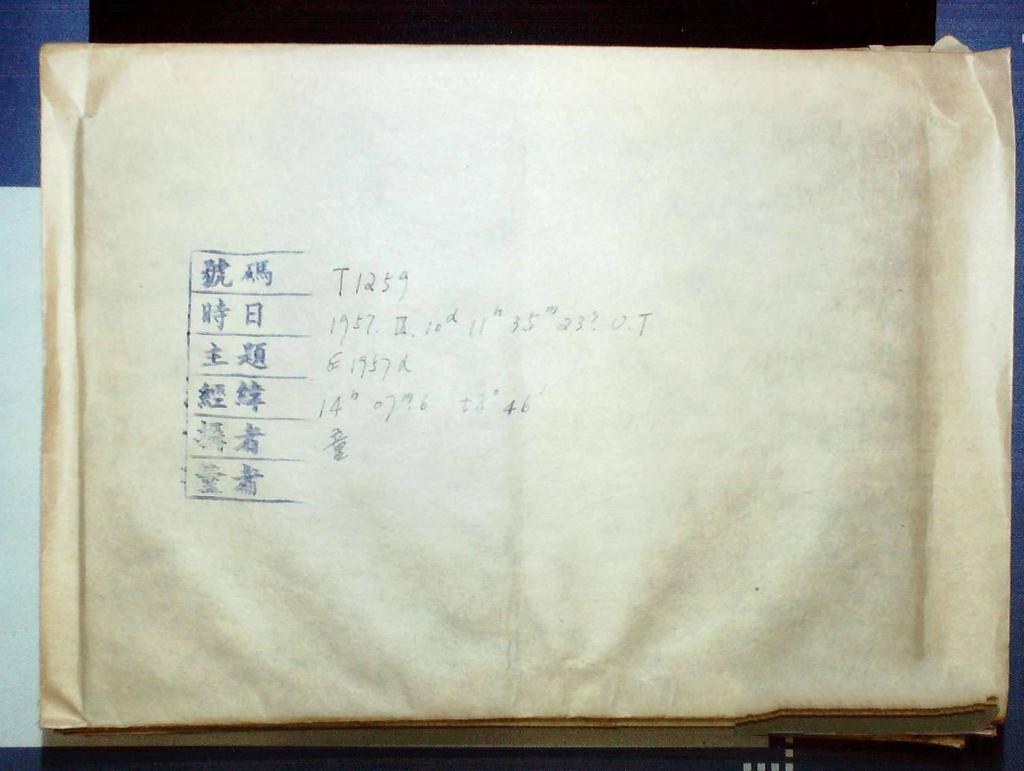 號碼 T1259
時日 1957. III. 10ᵈ 11ʰ 35ᵐ 23ˢ. U.T
主題 E 1957 α
經緯 14ʰ 07ᵐ.6 +3° 46′
攝者 童
量者